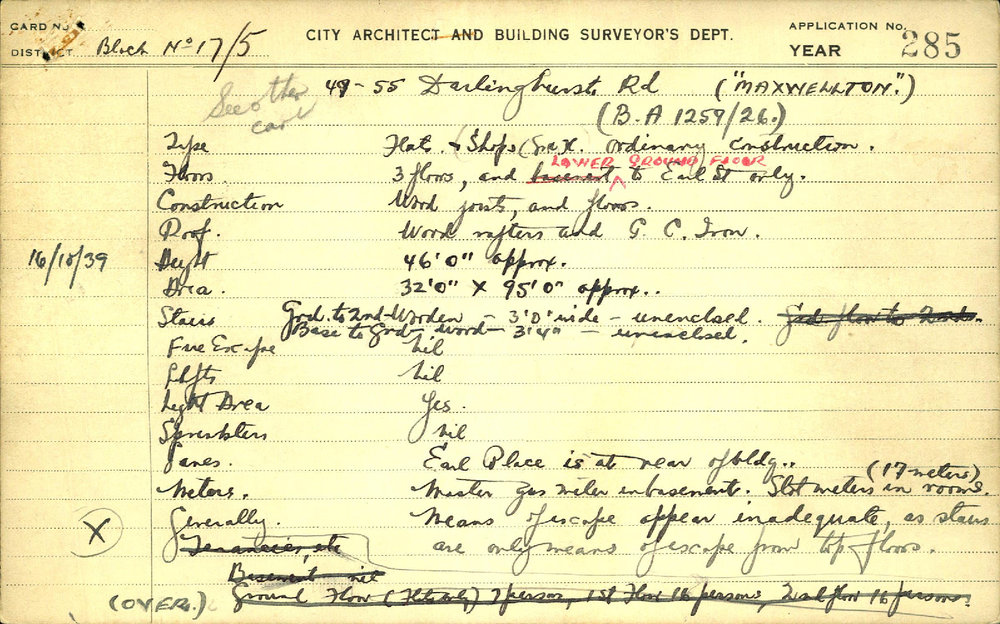 CARD No.
CITY ARCHITECT AND BUILDING SURVEYOR'S DEPT.
APPLICATION No. 285
DISTRICT Block No 17/5
YEAR
See other card
49-55 Darlinghurst Rd ("MAXWELLTON.")
(B.A 1259/26.)
Type Flats & Shops ordinary construction.
LOWER GROUND FLOOR
Floors 3 floors, and basement to Earl St only.
Construction Wood joists, and floors.
Roof. Wood rafters and G. C. Iron.
16/10/39 Height 46'0" approx.
Area. 32'0" X 95'0" approx..
Stairs Grd. to 2nd - Wooden - 3'0" wide - unenclsed. Grd floor to 2nd.
Base to Grd - wood - 3'4" - unenclosed.
Fire Escape nil
Lifts nil
Light Area Yes.
Sprinklers nil
Lanes. Earl Place is at rear of bldg..
(17 meters)
Meters. Master gas meter in basement. Slot meters in rooms.
X Generally. Means of escape appear inadequate, as stairs
Tenancies, etc are only means of escape from top floors.
Basement nil
(OVER.) Ground Floor (Flats only) 7 persons, 1st Floor 16 persons, 2nd floor 16 persons.